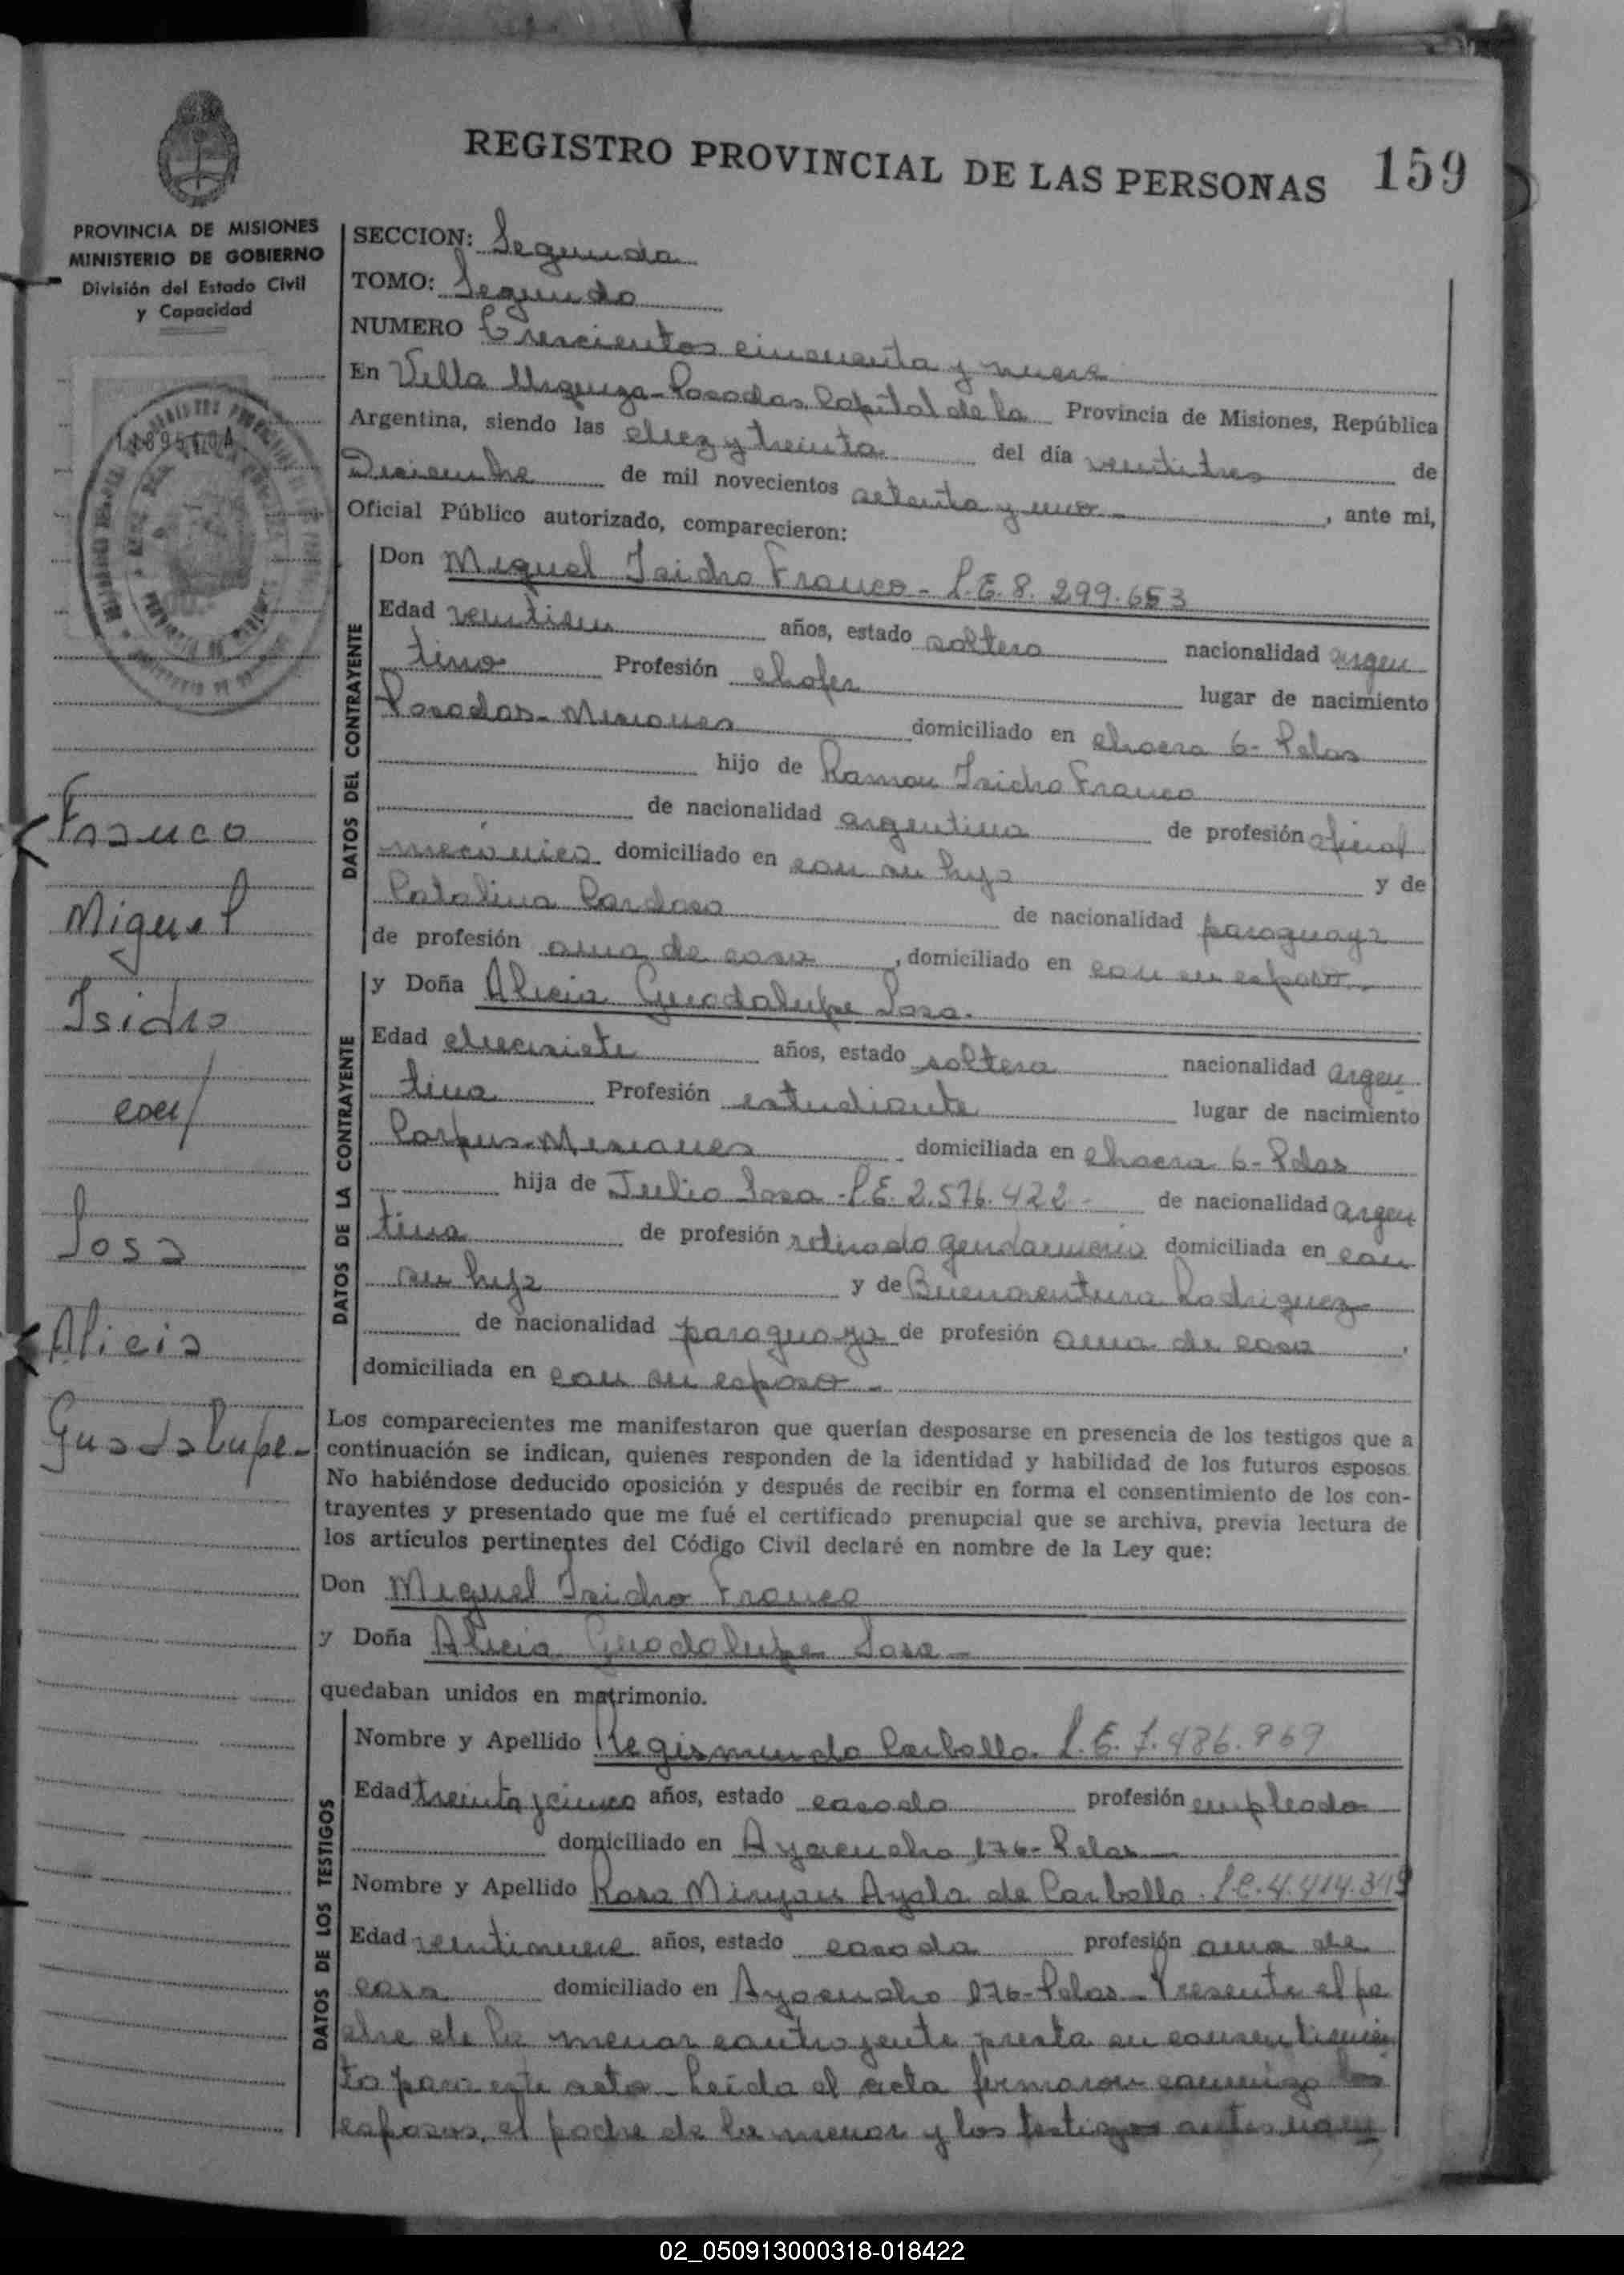 REGISTRO PROVINCIAL DE LAS PERSONAS 159
PROVINCIA DE MISIONES
MINISTERIO DE GOBIERNO
División del Estado Civil
y Capacidad
SECCION: Segunda
TOMO: Segundo
NUMERO Trescientos cincuenta y nueve
En Villa Urquiza - Posadas Capital de la Provincia de Misiones, República
Argentina, siendo las diez y treinta del día ventitres de
Diciembre de mil novecientos setenta y uno - , ante mi,
Oficial Público autorizado, comparecieron:
DATOS DEL CONTRAYENTE
Don Miguel Isidro Franco - L.E. 8.299.653
Edad ventiun años, estado soltero nacionalidad argen
tino Profesión chofer lugar de nacimiento
Posadas - Misiones domiciliado en chacra 6 - Pdas
hijo de Ramon Isidro Franco
de nacionalidad argentina de profesión oficial
mecánico domiciliado en con su hijo y de
Catalina Cardozo de nacionalidad paraguaya
de profesión ama de casa , domiciliado en con su esposo -
DATOS DE LA CONTRAYENTE
y Doña Alicia Guadalupe Sosa.
Edad diecisiete años, estado soltera nacionalidad argen
tina Profesión estudiante lugar de nacimiento
Corpus - Misiones domiciliada en chacra 6 - Pdas
hija de Julio Sosa - L.E. 2.576.422 - de nacionalidad argen
tina de profesión retirado gendarmeria domiciliada en con
su hija y de Buenaventura Rodriguez
de nacionalidad paraguaya de profesión ama de casa ,
domiciliada en con su esposo -
Franco
Miguel
Isidro
con/
Sosa
Alicia
Guadalupe -
Los comparecientes me manifestaron que querían desposarse en presencia de los testigos que a
continuación se indican, quienes responden de la identidad y habilidad de los futuros esposos.
No habiéndose deducido oposición y después de recibir en forma el consentimiento de los con-
trayentes y presentado que me fué el certificado prenupcial que se archiva, previa lectura de
los artículos pertinentes del Código Civil declaré en nombre de la Ley que:
Don Miguel Isidro Franco
y Doña Alicia Guadalupe Sosa -
quedaban unidos en matrimonio.
DATOS DE LOS TESTIGOS
Nombre y Apellido Regismundo Carballo. L.E. 7.486.969
Edad treinta y cinco años, estado casado profesión empleado
domiciliado en Ayacucho 176 - Pdas -
Nombre y Apellido Rosa Miryan Ayala de Carballo. L.C. 4.414.349
Edad ventinueve años, estado casada profesión ama de
casa domiciliado en Ayacucho 176 - Pdas - Presente el pa
dre de la menor contrayente presta su consentimien
to para este acto - Leída el acta firmaron conmigo los
esposos, el padre de la menor y los testigos antes nom
02_050913000318-018422